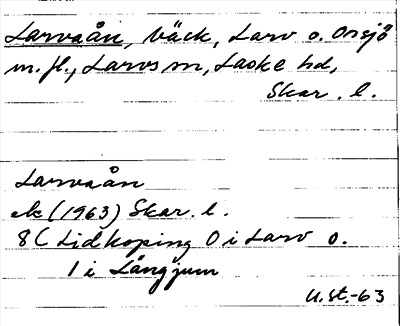 Larvaån, bäck, Larv o. Onsjö
m.fl., Larvs sn, Laske hd,
Skar. l.
Larvaån
ek (1963) Skar. l.
8C Lidköping 0 i Larv o.
1 i Långjum
U.st.-63